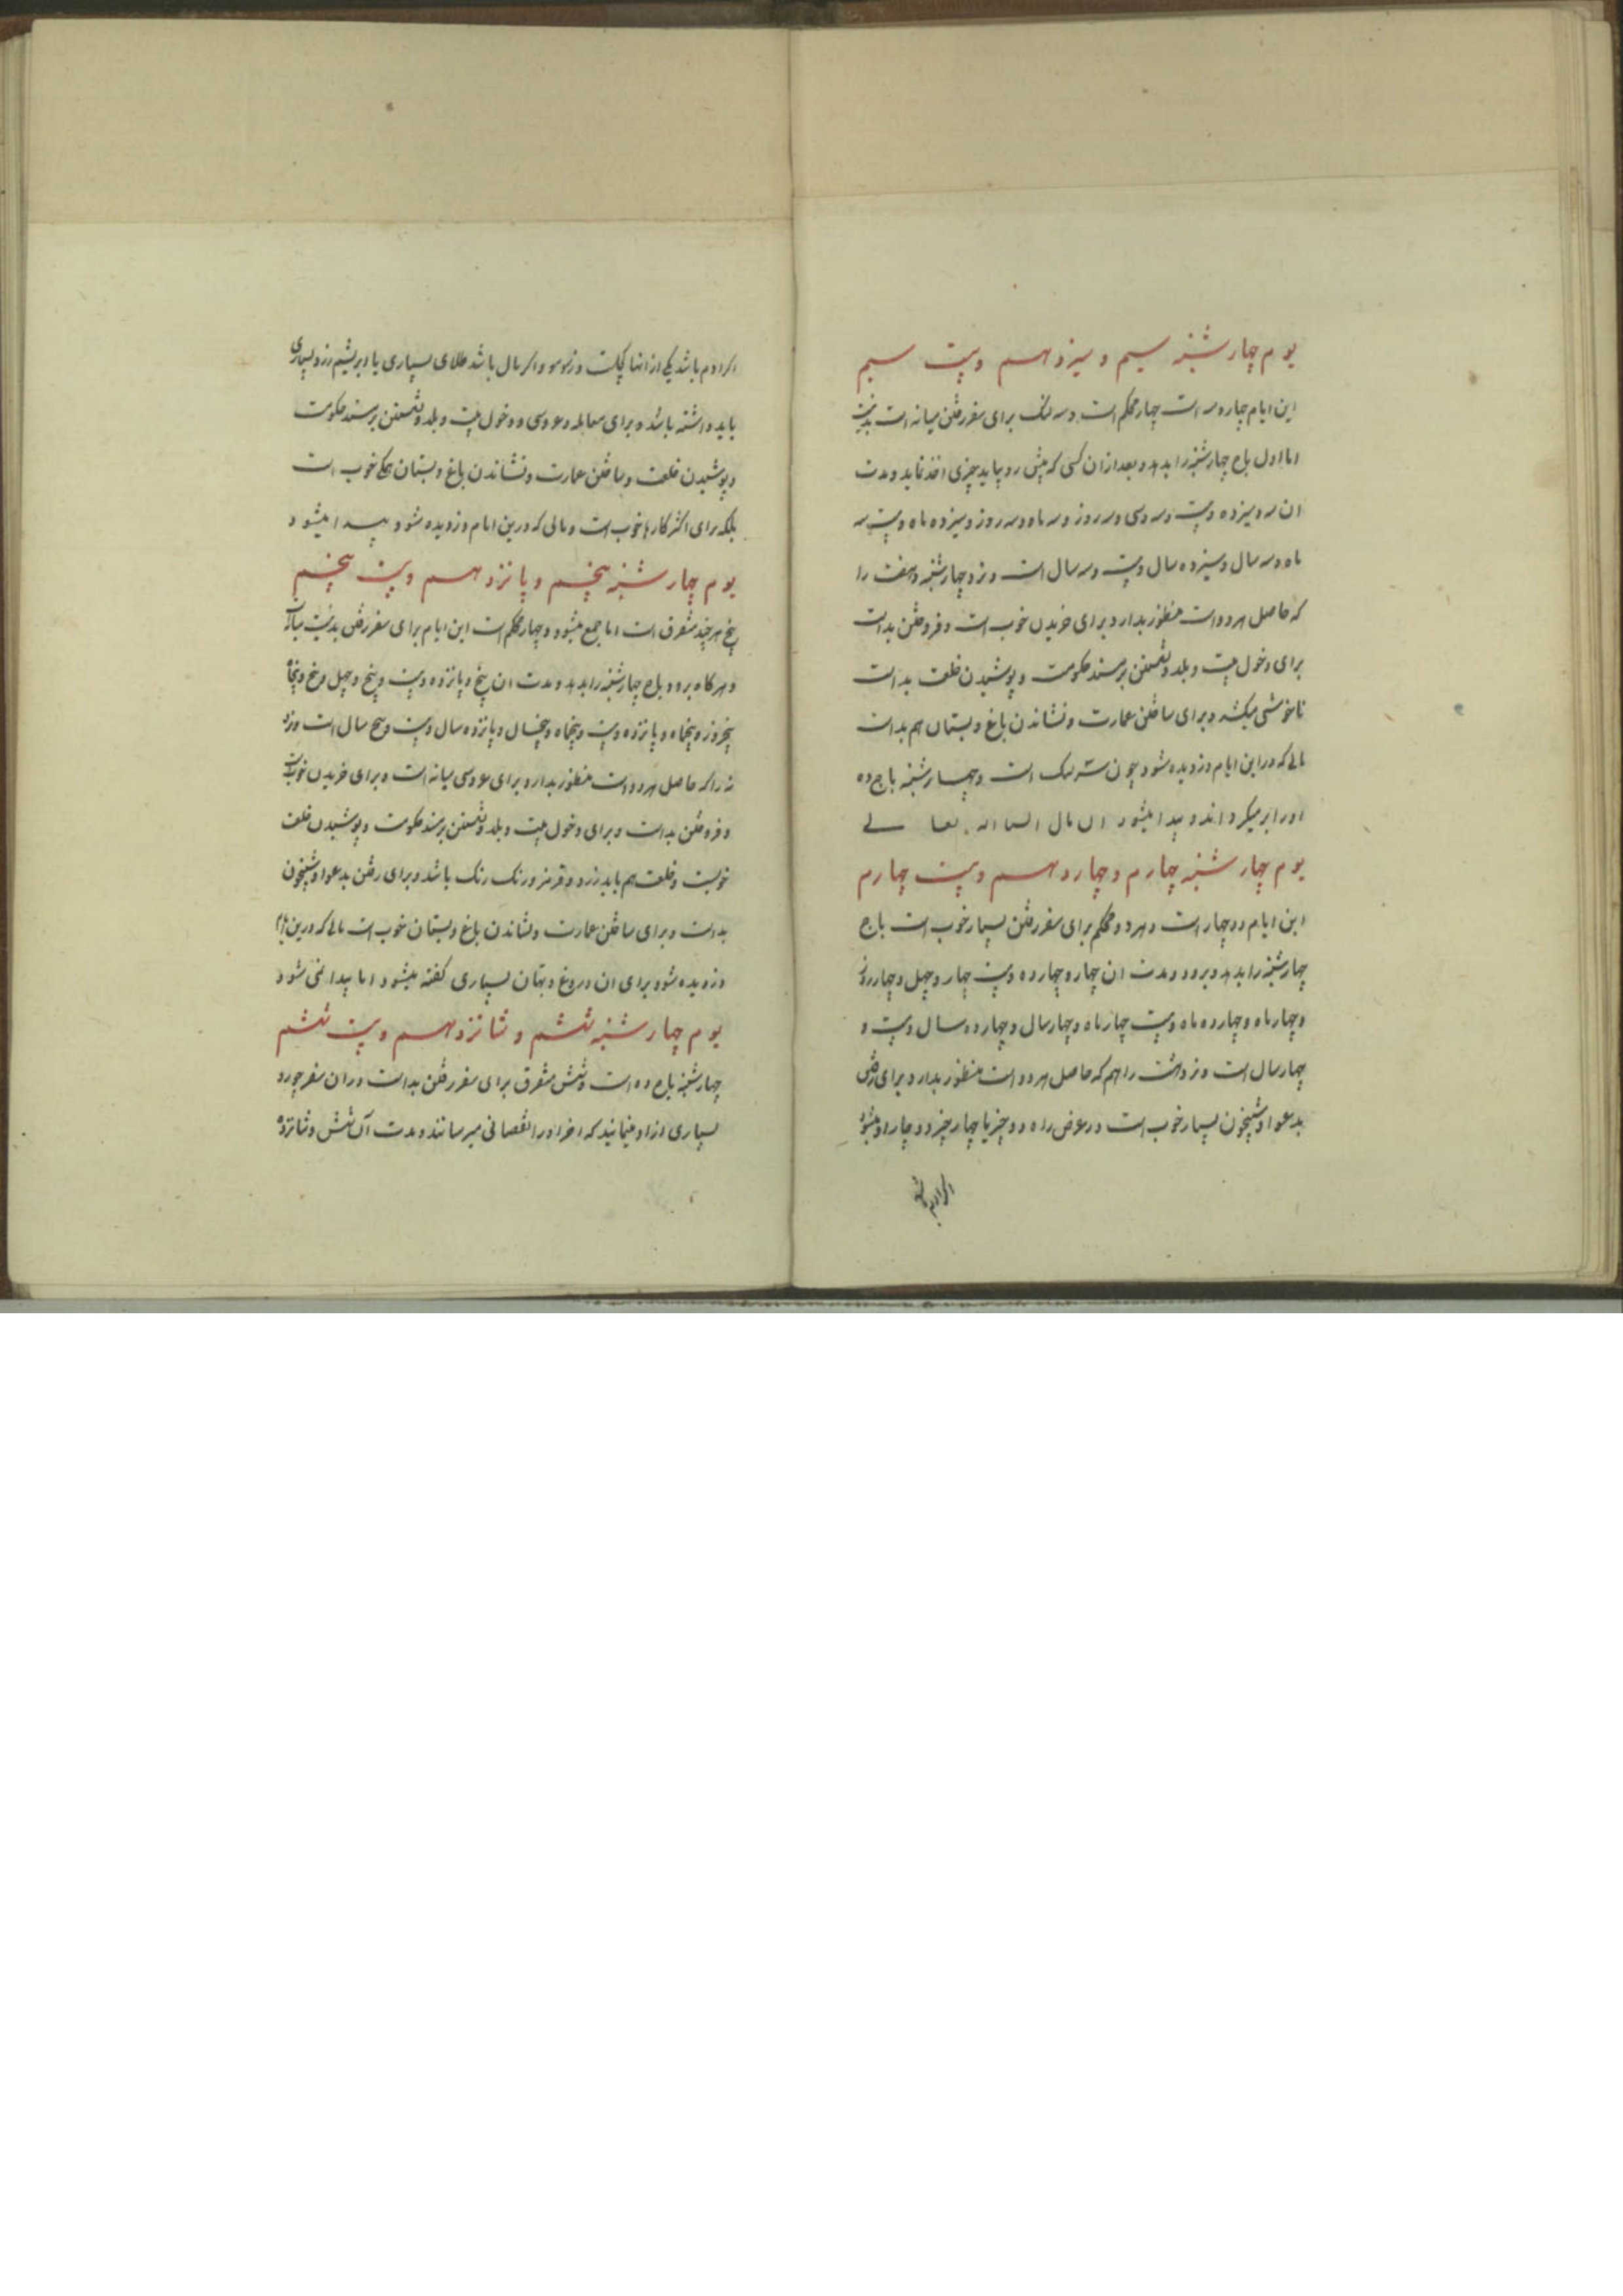 یوم چهارشنبه سیم و سیزدهم وبیست سیم
این ایام چهار و سه است چهار محکم است و سه لنگ برای سفر رفتن میانه است بد نیست
اما اول باج چهارشنبه را بدهد و بعد از ان کسی که پیش رو بیاید چیزی اخذ نماید و مدت
ان سه و سیزده وبیست و سه و سی و سه روز و سه ماه و سه روز و سیزده ماه وبیست سه
ماه و سه سال و سیزده سال وبیست و سه سال است و نزد چهارشنبه و هفت را
که حاصل هر دو است منظور بدارد برای خریدن خوب است و فروختن بد است
برای دخول بیت و بلد و نشستن بر مسند حکومت و پوشیدن خلعت بد است
ناخوشی میکشد و برای ساختن عمارت و نشاندن باغ و بستان هم بد است
مالی که در این ایام دزدیده شود چون سه لنگ است و چهارشنبه باج ده
او را بر میگرداند و پیدا میشود ان مال انشاالله تعالی
یوم چهارشنبه چهارم و چهاردهم وبیست چهارم
این ایام دو چهار است و هر دو محکم برای سفر رفتن بسیار خوب است باج
چهارشنبه را بدهد و برود و مدت ان چهار و چهارده وبیست چهار و چهل و چهار روز
و چهار ماه و چهارده ماه وبیست چهار ماه و چهار سال و چهارده سال وبیست و
چهار سال است و نزد هشت را هم که حاصل هر دو است منظور بدارد برای رفتن
بدعوا و شبیخون بسیار خوب است در عرض راه دو چیز یا چهار چیز دوچار او میشود
اگر ادم باشد
اگر ادم باشد یکی از انها کچلست و زرد مو و اگر مال باشد طلای بسیاری یا ابریشم زرد بسیاری
باید داشته باشد و برای معامله و عروسی و دخول بیت و بلد و نشستن بر مسند حکومت
و پوشیدن خلعت و ساختن عمارت و نشاندن باغ و بستان همگی خوب است
بلکه برای اکثر کارها خوب است و مالی که درین ایام دزدیده شود پیدا میشود
یوم چهارشنبه پنجم و پانزدهم وبیست پنجم
پنج هر چند متفرق است اما جمع میشود و چهار محکم است این ایام برای سفر رفتن بد نیست میانه است
و هر کاه برود باج چهارشنبه را بدهد و مدت ان پنج و پانزده وبیست و پنج و چهل و پنج و پنجاه
پنج روز و پنجماه و پانزده وبیست و پنجماه و پنجسال و پانزده سال وبیست و پنج سال است و نزد
نه را که حاصل هر دو است منظور بدارد برای عروسی میانه است و برای خریدن خوب است
و فروختن بد است و برای دخول بیت و بلد و نشستن بر مسند حکومت و پوشیدن خلعت
خوبست و خلعت هم باید زرد و قرمز و رنک رنک باشد و برای رفتن بدعوا و شبیخون
بد است و برای ساختن عمارت و نشاندن باغ و بستان خوب است مالی که درین ایام
دزدیده شود برای ان دروغ و بهتان بسیاری کفته میشود اما پیدا نمی شود
یوم چهارشنبه ششم و شانزدهم وبیست ششم
چهارشنبه باج ده است و شش متفرق برای سفر رفتن بد است در ان سفر جور و
بسیاری از او مینمایند که اخر او را نقصانی میرسانند و مدت آن شش و شانزده